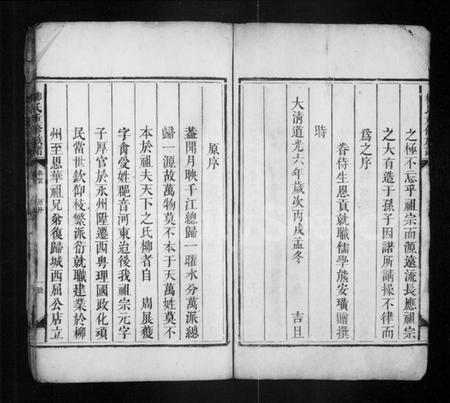 之極不忘乎祖宗而源遠流長應祖宗
之大有造于孫子因諾所請操不律而
爲之序
眷侍生恩貢就職儒學熊安璜贈撰
時
大淸道光六年歲次丙戌孟冬 吉旦
原序
蓋聞月映千江總歸一曜水分萬派總
歸一源故萬物莫不本于天萬姓莫不
本於祖夫天下之氏柳者自 周展獲
字禽受姓麗音河東迨後我祖宗元字
子厚官於永州陞遷西粤理國政化頑
民當世欽仰枝繁派衍就職建業於柳
州至思華祖兄弟復歸城西屈公店立